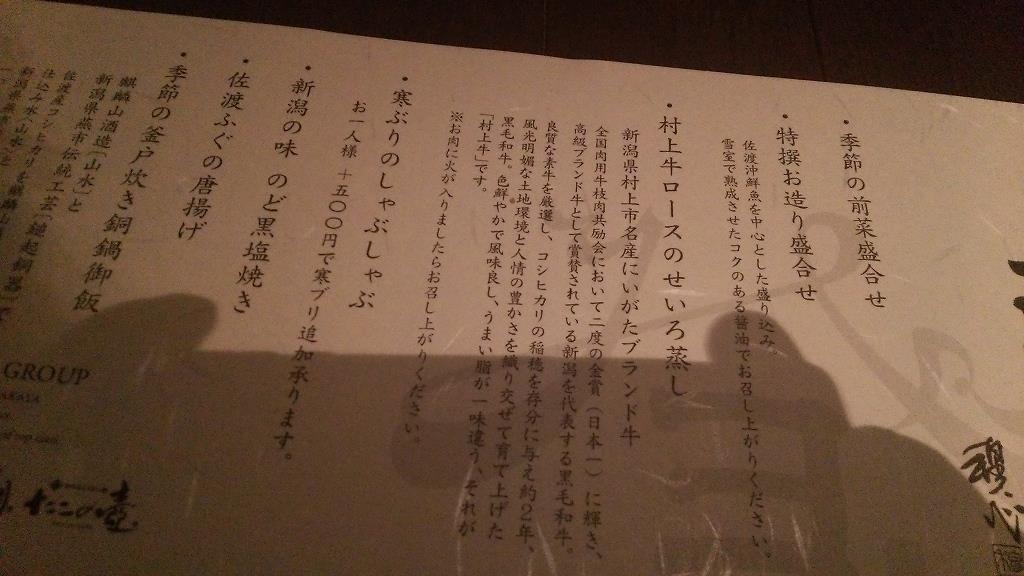 ・季節の前菜盛合せ
・特撰お造り盛合せ
佐渡沖鮮魚を中心とした盛り込み。
雪室で熟成させたコクのある醤油でお召し上がりください。
・村上牛ロースのせいろ蒸し
新潟県村上市名産にいがたブランド牛
全国肉用牛枝肉共励会において二度の金賞（日本一）に輝き、
高級ブランド牛として賞賛されている新潟を代表する黒毛和牛。
良質な素牛を厳選し、コシヒカリの稲穂を存分に与え約2年、
風光明媚な土地環境と人情の豊かさを織り交ぜて育て上げた
黒毛和牛。色鮮やかで風味良し、うまい脂が一味違う、それが
「村上牛」です。
※お肉に火が入りましたらお召し上がりください。
・寒ぶりのしゃぶしゃぶ
お一人様 ＋五〇〇円で寒ブリ追加承ります。
・新潟の味 のど黒塩焼き
・佐渡ふぐの唐揚げ
・季節の釜戸炊き銅鍋御飯
麒麟山酒造「山水」と
新潟県燕市伝統工芸「鎚起銅器」で
佐渡産コシヒカリを
仕込み水「山水」と
GROUP
たこの壺